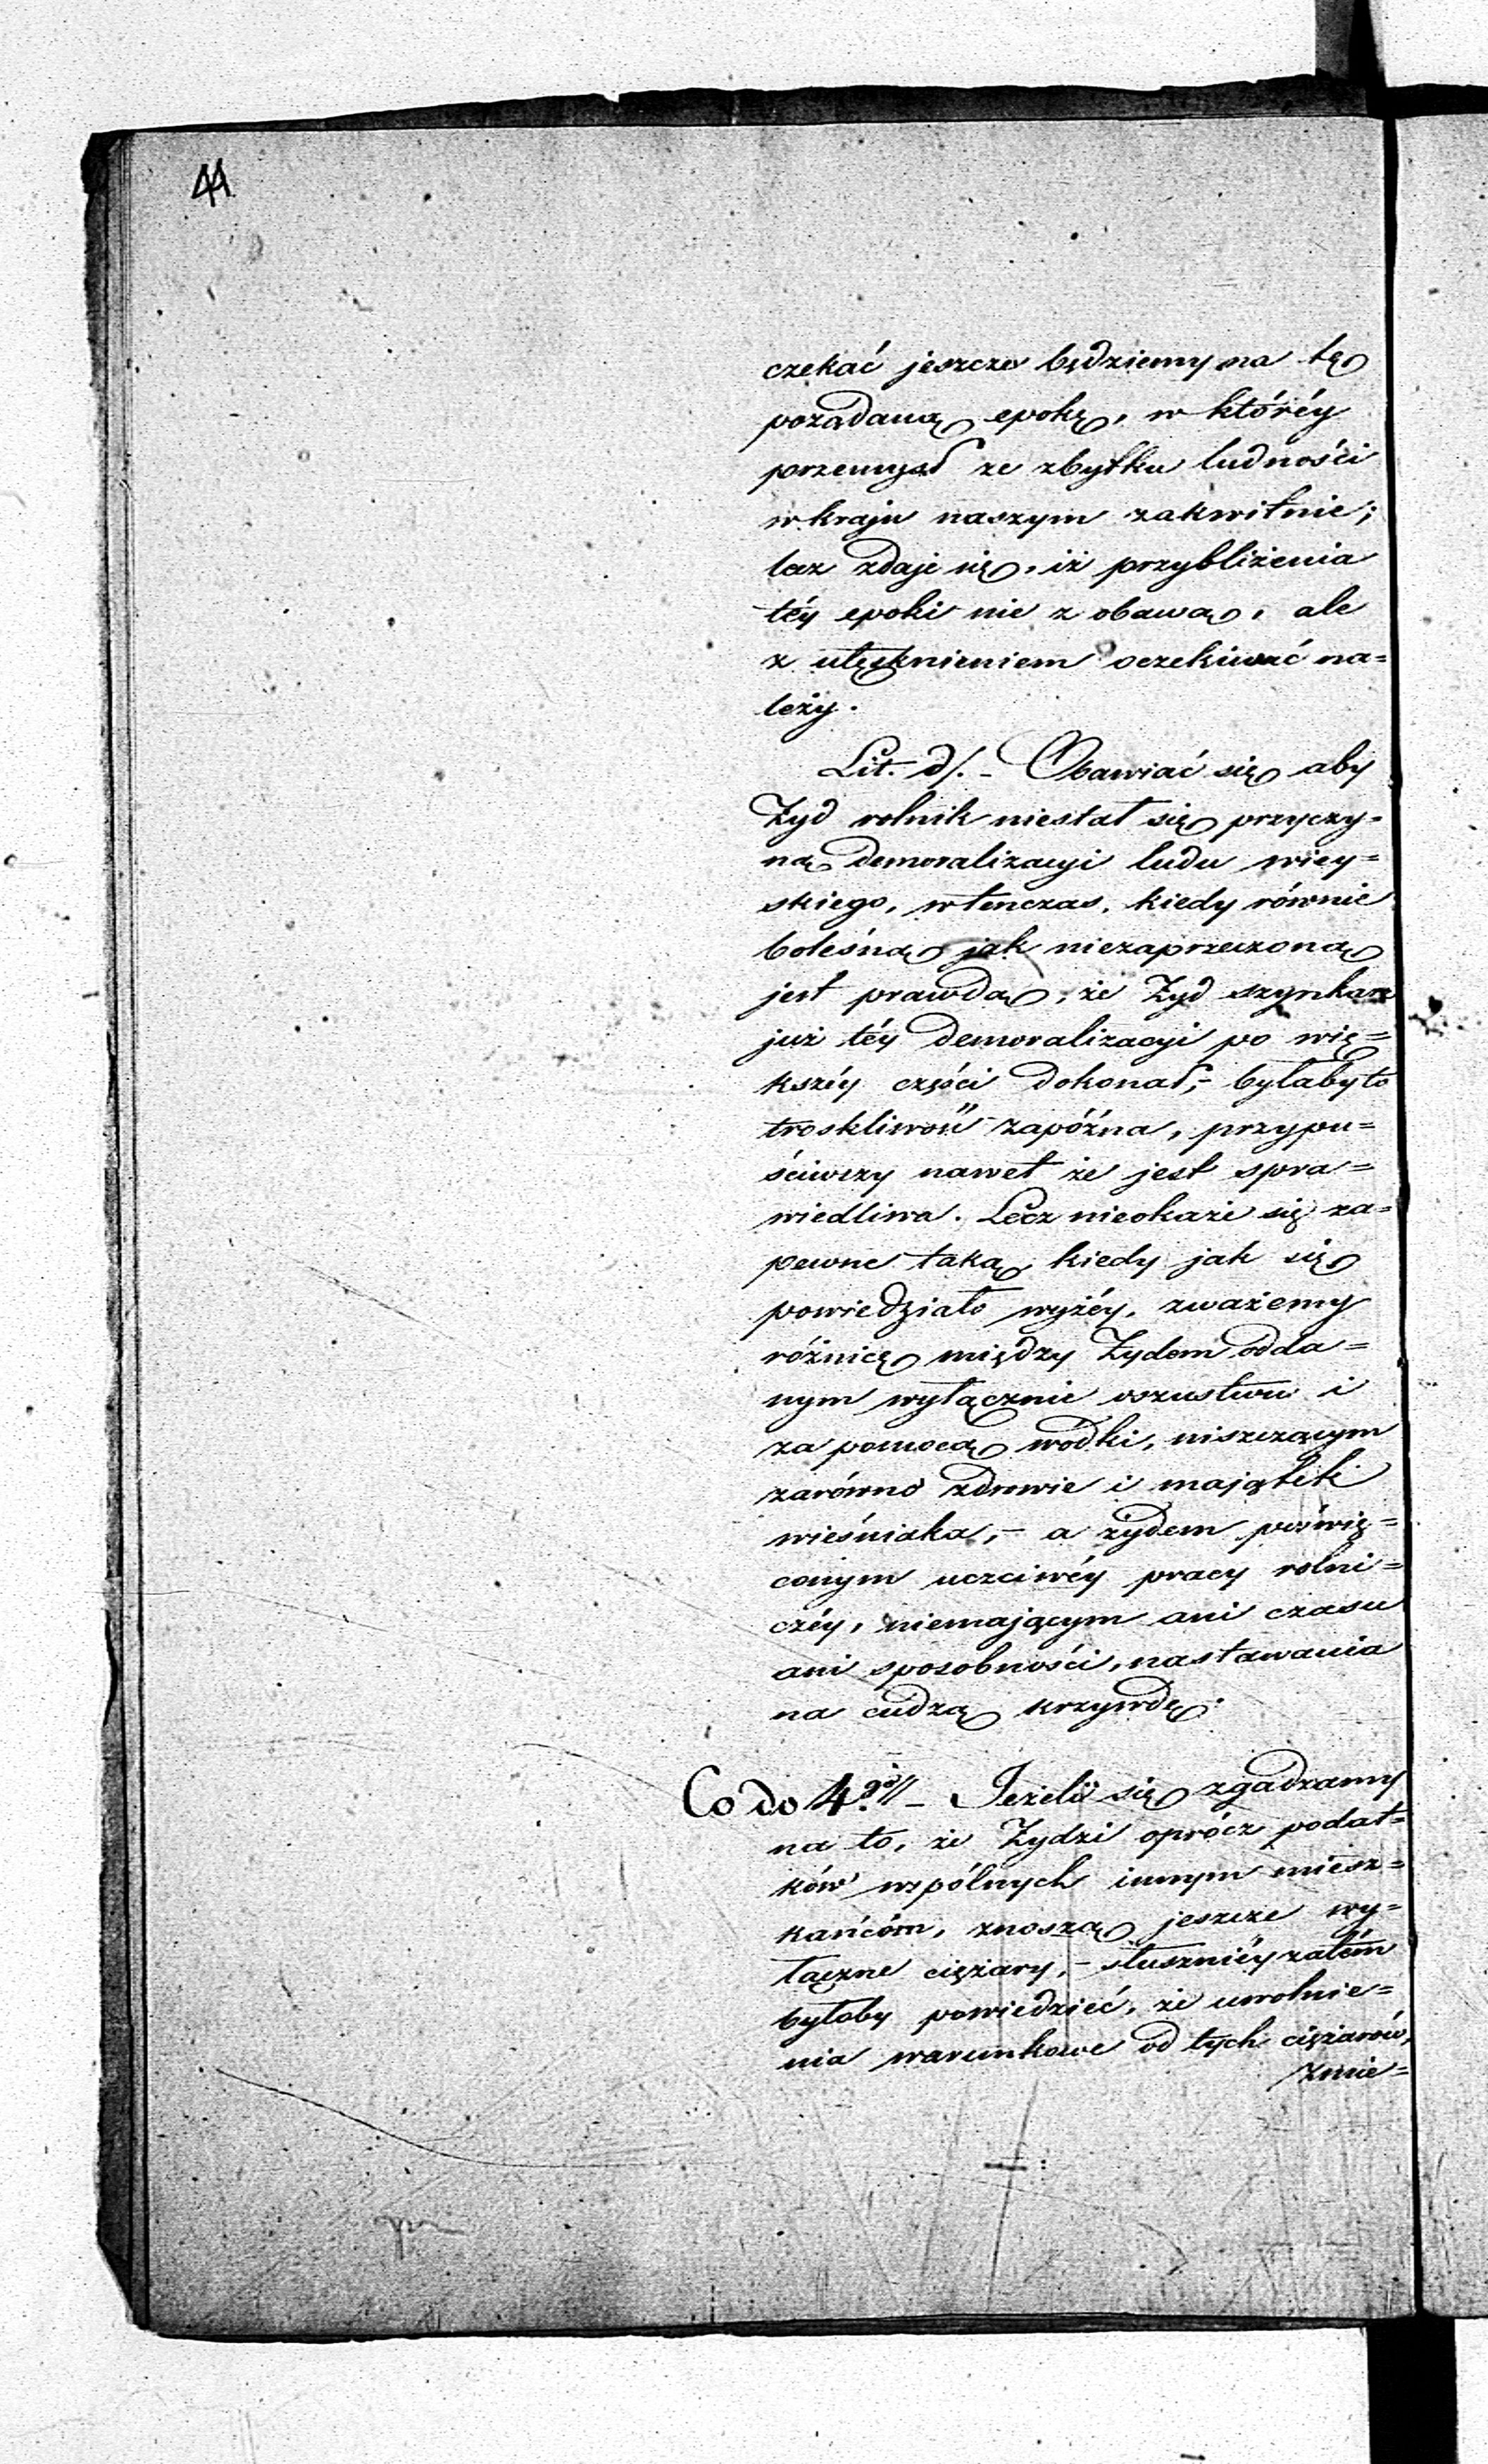 44
czekać jeszcze będziemy na tę
pożądaną epokę, w któréy
przemysł ze zbytku ludności
w kraju naszym zakwitnie;
lecz zdaje się, iż przybliżenia
téy epoki nie z obawą, ale
z utęsknieniem oczekiwać na=
leży.
Lit. d/. - Obawiać się aby
Żyd rolnik niestał się przyczy=
ną demoralizacyi ludu wiey=
skiego, wtenczas, kiedy równie
boleśną jak niezaprzeczoną
jest prawdą, że Żyd szynkarz
już téy demoralizacyi po wię=
kszéy części dokonał, - byłaby to
troskliwość zapóźna, przypu=
ściwszy nawet że jest spra=
wiedliwa. Lecz nieokaże się za=
pewne taką, kiedy jak się
powiedziało wyżéy, zważemy
różnicę między Żydem odda=
nym wyłącznie oszustwu i
za pomocą wódki, niszczącym
zarówno zdrowie i majątek
wieśniaka, - a żydem poświę=
conym uczciwéy pracy rolni=
czéy, niemającym ani czasu
ani sposobności, nastawania
na cudzą krzywdę.
Co do 4.go// - Jeżeli się zgadzamy
na to, że Żydzi oprócz podat=
ków wspólnych innym miesz=
kańcóm, znoszą jeszcze wy=
łączne ciężary, - słuszniéy zatém
byłoby powiedzieć, że uwolnie=
nia warunkowe od tych ciężarów,
zmie=